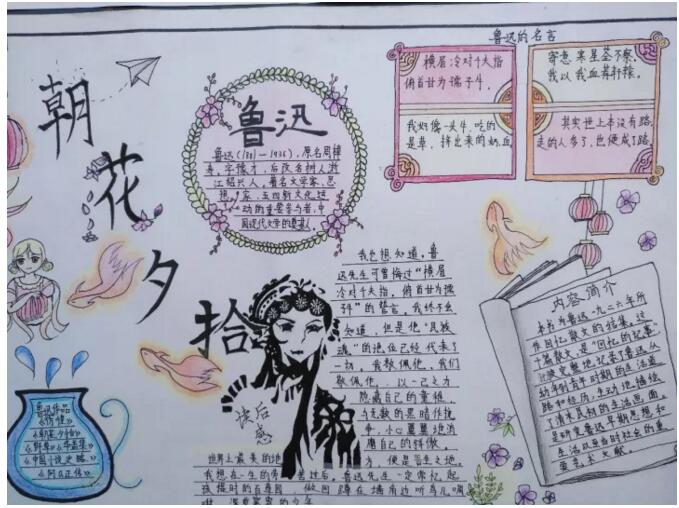 朝花夕拾
鲁迅
鲁迅(1881-1936),原名周樟
寿,字豫才,后改名树人,浙
江绍兴人。著名文学家、思
想家,五四新文化运
动的重要参与者,中
国现代文学的奠基人
鲁迅的名言
横眉冷对千夫指
俯首甘为孺子牛。
寄意寒星荃不察,
我以我血荐轩辕。
我好像一头牛,吃的
是草,挤出来的奶、血
其实世上本没有路,
走的人多了,也便成了路
内容简介
本书为鲁迅一九二六年所
作回忆散文的结集,这
十篇散文,是“回忆的记事”
比较完整地记录了鲁迅从
幼年到青年时期的生活道
路和经历,生动地描绘
了清末民初的生活画面,
是研究鲁迅早期思想和
生活以至当时社会的重
要艺术文献。
鲁迅作品
《彷徨》
《朝花夕拾》
《野草》《华盖集》
《中国小说史略》
《阿Q正传》
读后感
我也想知道,鲁
迅先生可曾悔过“横眉
冷对千夫指,俯首甘为孺
子牛”的誓言,我终不会
知道,但是他“民族
魂”的地位已经代表了一
切。我敬佩他,我们
敬佩他,以一己之力
隐藏自己的童稚,
与无数的黑暗作抗
争,小心翼翼地消
磨自己的锋傲
世界上最美的地方,便是吾生之地。
我想在一生的劳苦过后,鲁迅先生一定常忆起
孩提时的百草园,做回蹲在墙角边听鸟儿